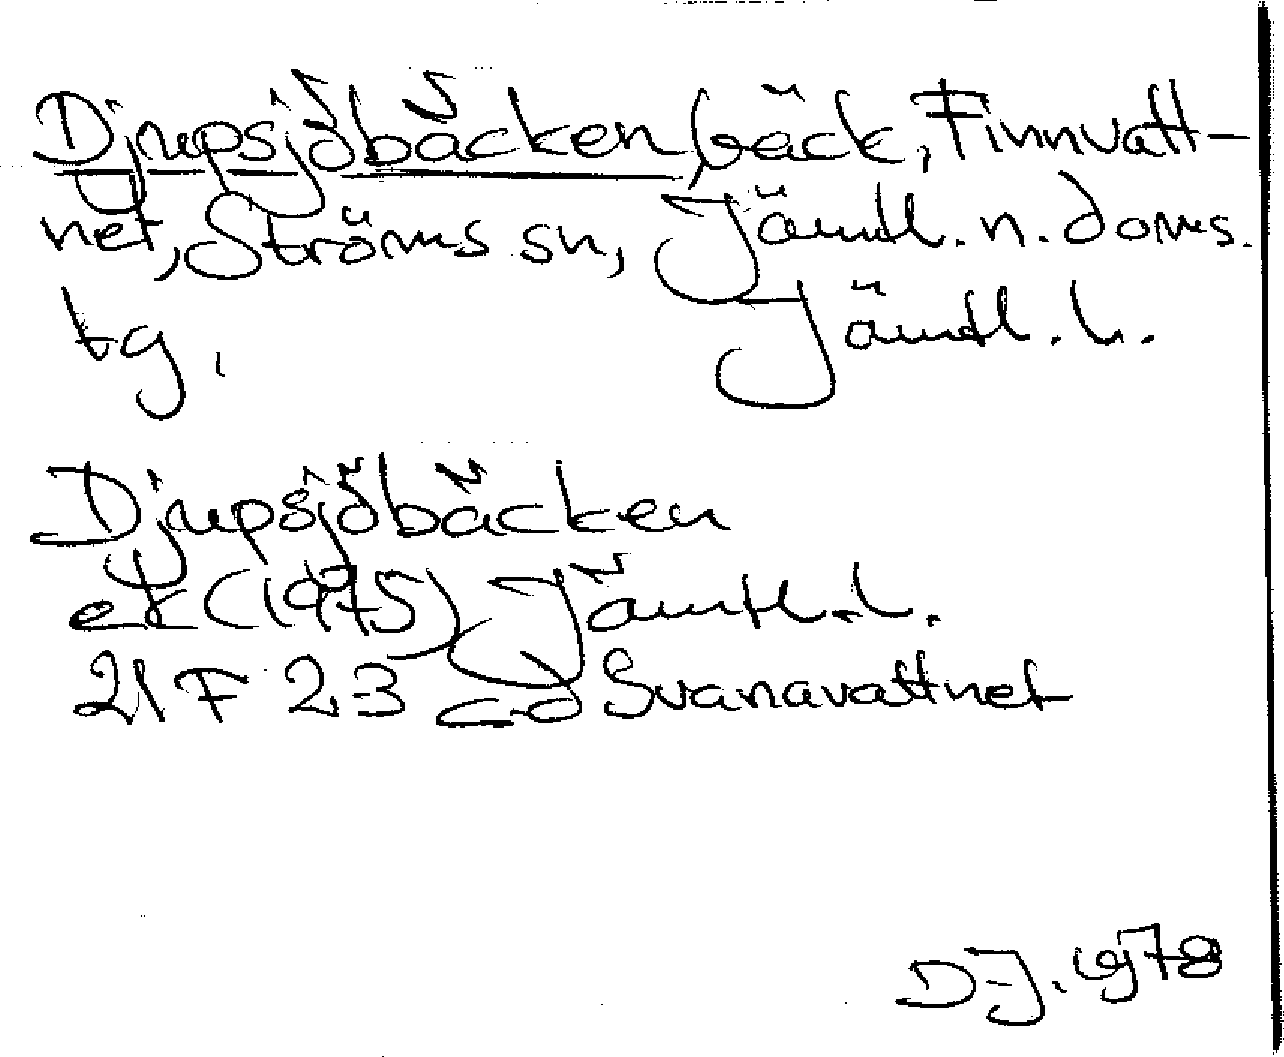 Djupsjöbäcken, bäck, Finnvatt-
net, Ströms sn, Jämtl. n. doms.
tg.
Jämtl. l.
Djupsjöbäcken
ek (1975) Jämtl. l.
21 F 2-3 c-d Svanavattnet
DJ. 1978